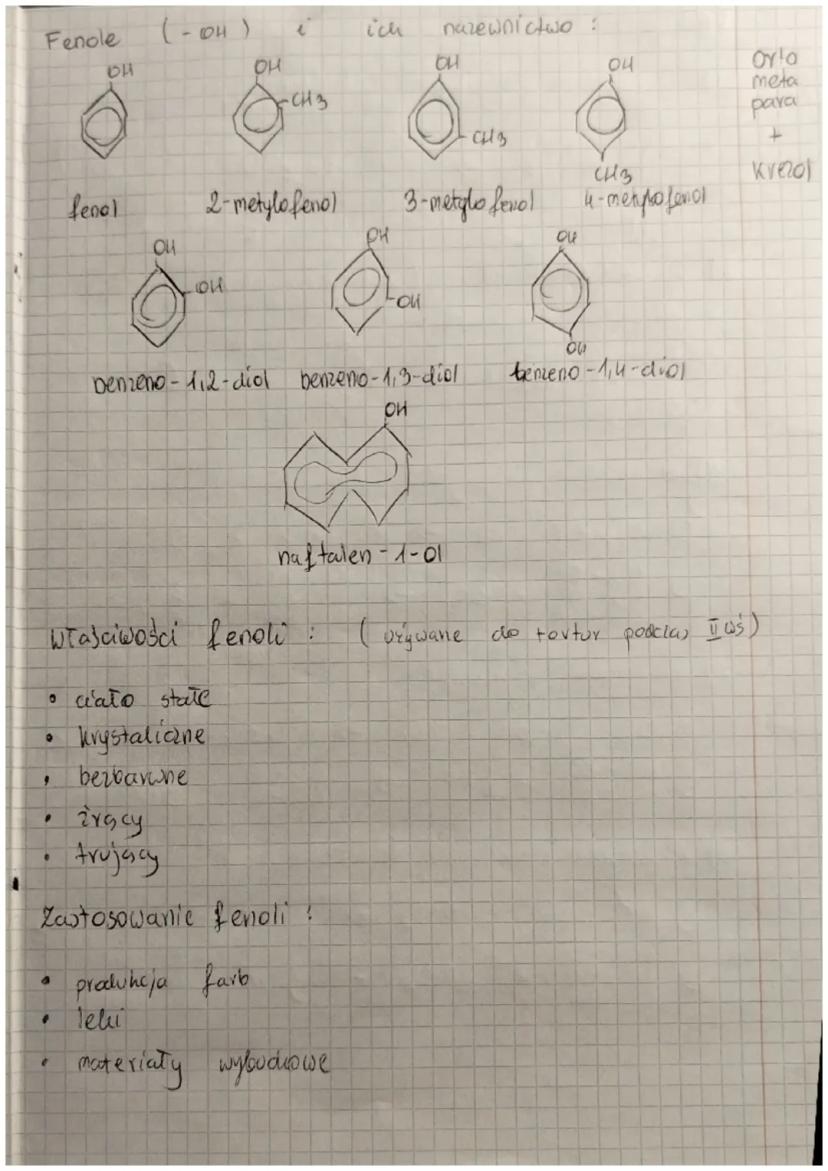 Fenole (-OH) i ich nazewnictwo:
OH OH OH OH
CH3 CH3 CH3
orto
meta
para
+
krezol
fenol 2-metylofenol 3-metylofenol 4-metylofenol
OH OH OH
OH OH OH
benzeno-1,2-diol benzeno-1,3-diol benzeno-1,4-diol
OH
naftalen-1-ol
Właściwości fenoli: (używane do tortur podczas II wś)
• ciało stałe
• krystaliczne
• bezbarwne
• żrący
• trujący
Zastosowanie fenoli:
• produkcja farb
• leki
• materiały wybuchowe